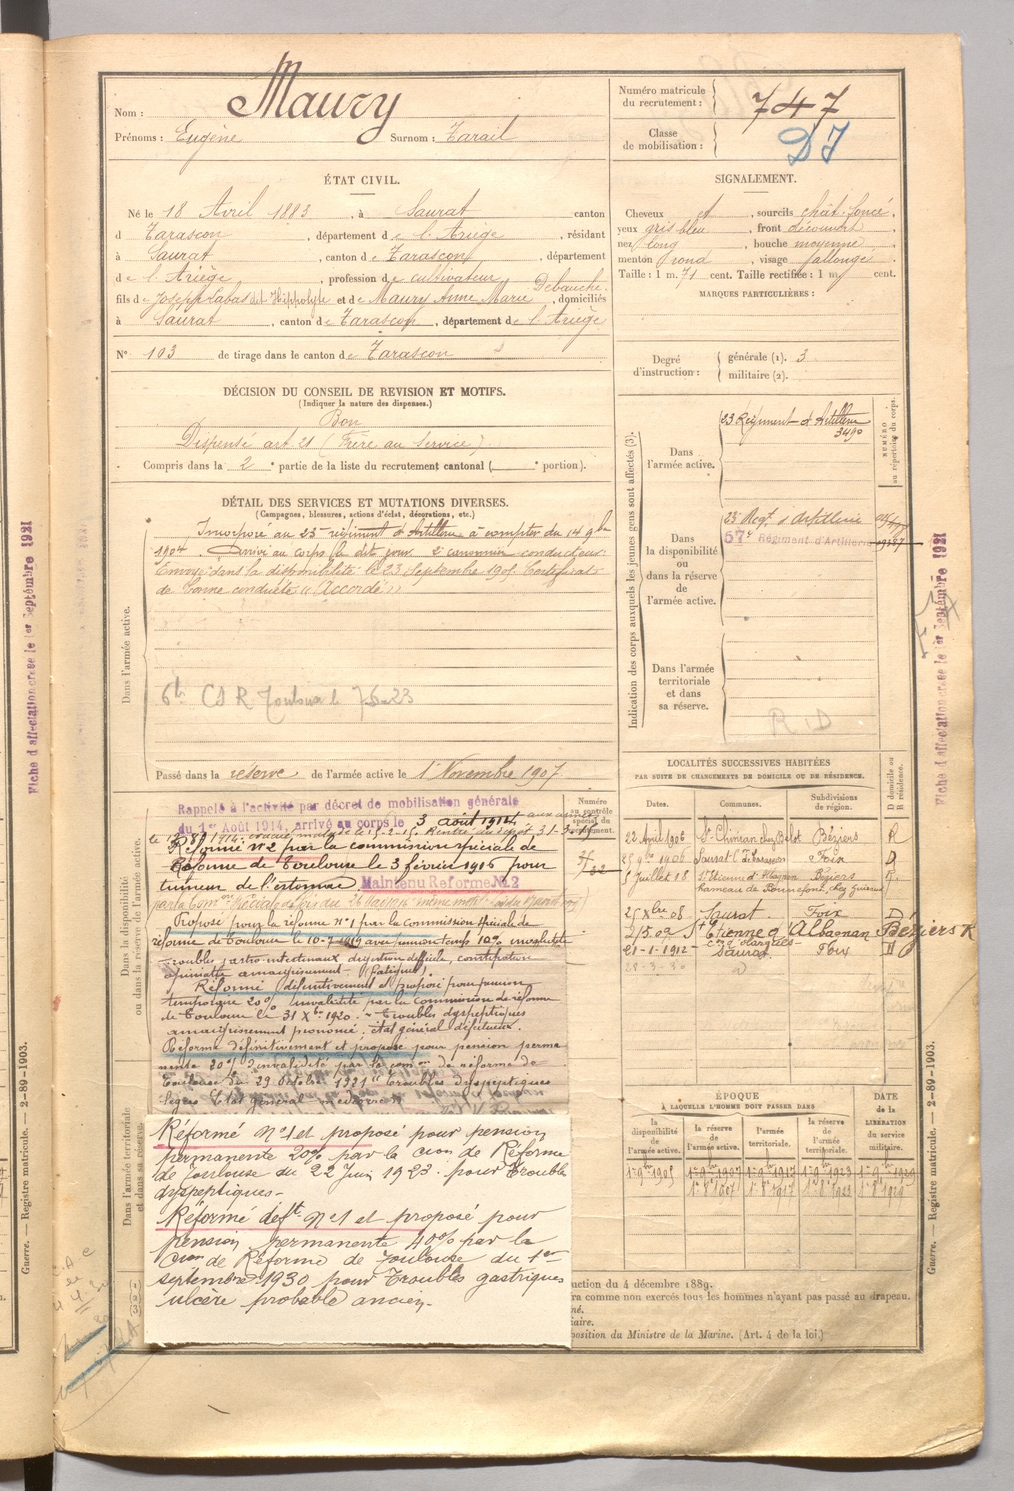 Nom : Maury
Prénoms : Eugène Surnom : Tarail
Numéro matricule du recrutement : 747
Classe de mobilisation : DJ
ÉTAT CIVIL.
Né le 18 Avril 1883, à Saurat canton
d Tarascon, département de l'Ariège, résidant
à Saurat, canton de Tarascon, département
de l'Ariège, profession de cultivateur Debauche.
fils de Joseph Labas dit Hippolyte et de Maury Anne Marie, domiciliés
à Saurat, canton de Tarascon, département de l'Ariège
N° 103 de tirage dans le canton de Tarascon
SIGNALEMENT.
Cheveux et, sourcils chât. foncé,
yeux gris bleu, front découvert
nez long, bouche moyenne
menton rond, visage allongé
Taille : 1 m. 71 cent. Taille rectifiée : 1 m cent.
MARQUES PARTICULIÈRES :
Degré d'instruction : générale (1). 3
militaire (2).
DÉCISION DU CONSEIL DE REVISION ET MOTIFS.
(Indiquer la nature des dispenses.)
Bon
Dispensé art. 21 (Frère au Service)
Compris dans la 2e partie de la liste du recrutement cantonal ( portion).
DÉTAIL DES SERVICES ET MUTATIONS DIVERSES.
(Campagnes, blessures, actions d'éclat, décorations, etc.)
Dans l'armée active.
Incorporé au 23e régiment d'Artillerie à compter du 14 9bre
1904. Arrivé au corps le dit jour. 2e canonnier conducteur.
Envoyé dans la disponibilité le 23 Septembre 1905. Certificat
de bonne conduite "Accordé"
Passé dans la réserve de l'armée active le 1er Novembre 1907.
Indication des corps auxquels les jeunes gens sont affectés (3).
NUMÉRO au répertoire du corps.
Dans l'armée active.
23 Régiment d'Artillerie
3490
Dans la disponibilité ou dans la réserve de l'armée active.
23 Regt d'Artillerie
57e Régiment d'Artillerie
Dans l'armée territoriale et dans sa réserve.
R D
Fiche d'affectation créée le 1er Septembre 1921
Fiche d'affectation créée le 1er Septembre 1921
LOCALITÉS SUCCESSIVES HABITÉES
PAR SUITE DE CHANGEMENTS DE DOMICILE OU DE RÉSIDENCE.
D domicile ou R résidence.
Dates. Communes. Subdivisions de région.
22 Avril 1906 St Chinian chez Belot Béziers R
25 9bre 1906 Saurat Cn Tarascon Foix D
5 Juillet 08 St Etienne d'Albagnan Béziers R.
25 Xbre 08 Saurat. Foix D
2/5.09 St Etienne d'Albagnan Béziers R
21-1-1912 Saurat Foix D
28-3-30
Dans la disponibilité ou dans la réserve de l'armée active.
Numéro au contrôle spécial du recrutement.
Rappelé à l'activité par décret de mobilisation générale
du 1er Août 1914, arrivé au corps le 3 août 1914
Réformé N° 2 par la commission spéciale de
Réforme de Toulouse le 3 février 1916 pour
tumeur de l'estomac Maintenu Reformé N°2
Proposé pour la réforme N° 1 par la Commission spéciale de
réforme de Toulouse le 10-7-1919 avec pension temp. 10% invalidité
troubles gastro-intestinaux digestion difficile, constipation
opiniâtre amaigrissement (fatigue).
Réformé définitivement et proposé pour pension
temporaire 20% invalidité par la Commission de réforme
de Toulouse le 31 Xbre 1920. Troubles dyspeptiques
amaigrissement prononcé. état général défectueux.
Réformé définitivement et proposé pour pension perma
nente 20% d'invalidité par la Comon de réforme de
Toulouse du 29 Octobre 1921 "Troubles dyspeptiques
légers Etat général médiocre"
Dans l'armée territoriale et dans sa réserve.
Réformé n°1 et proposé pour pension
permanente 20% par la Cion de Réforme
de Toulouse du 22 Juin 1923. pour Trouble
dyspeptiques-
Réformé deft. n°1 et proposé pour
pension permanente 40% par la
Cion de Réforme de Toulouse du 1er
septembre 1930 pour Troubles gastriques
ulcère probable ancien.
ÉPOQUE
À LAQUELLE L'HOMME DOIT PASSER DANS
DATE de la LIBÉRATION du service militaire.
la disponibilité de l'armée active. la réserve de l'armée active. l'armée territoriale. la réserve de l'armée territoriale.
1er 9bre 1905 1er 9bre 1907 1er 9bre 1917 1er 9bre 1923 1er 9bre 1929
uction du 4 décembre 1889.
ra comme non exercés tous les hommes n'ayant pas passé au drapeau.
né.
iaire.
position du Ministre de la Marine. (Art. 4 de la loi.)
Guerre. — Registre matricule. — 2-89-1903.
Guerre. — Registre matricule. — 2-89-1903.